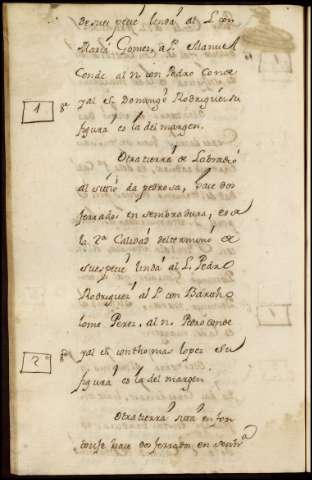 de su especie linda al L. con
María Gomez, a P. Manuel
Conde al n. con Pedro Conde
y al s. Domingo Rodriguez su
figura es la del margen.
1
Otra tierra de Labradio
al sitio da pedrosa, hace dos
ferrados en sembradura, es de
la 2ª Calidad del termino de
su especie linda al L. Pedro
Rodriguez al P. con Barth
lome Perez, al n. Pedro conde
y al s. con thomas lopez su
figura es la del margen.
2º
Otra tierra sita en fon
hace dos ferrados en sembra